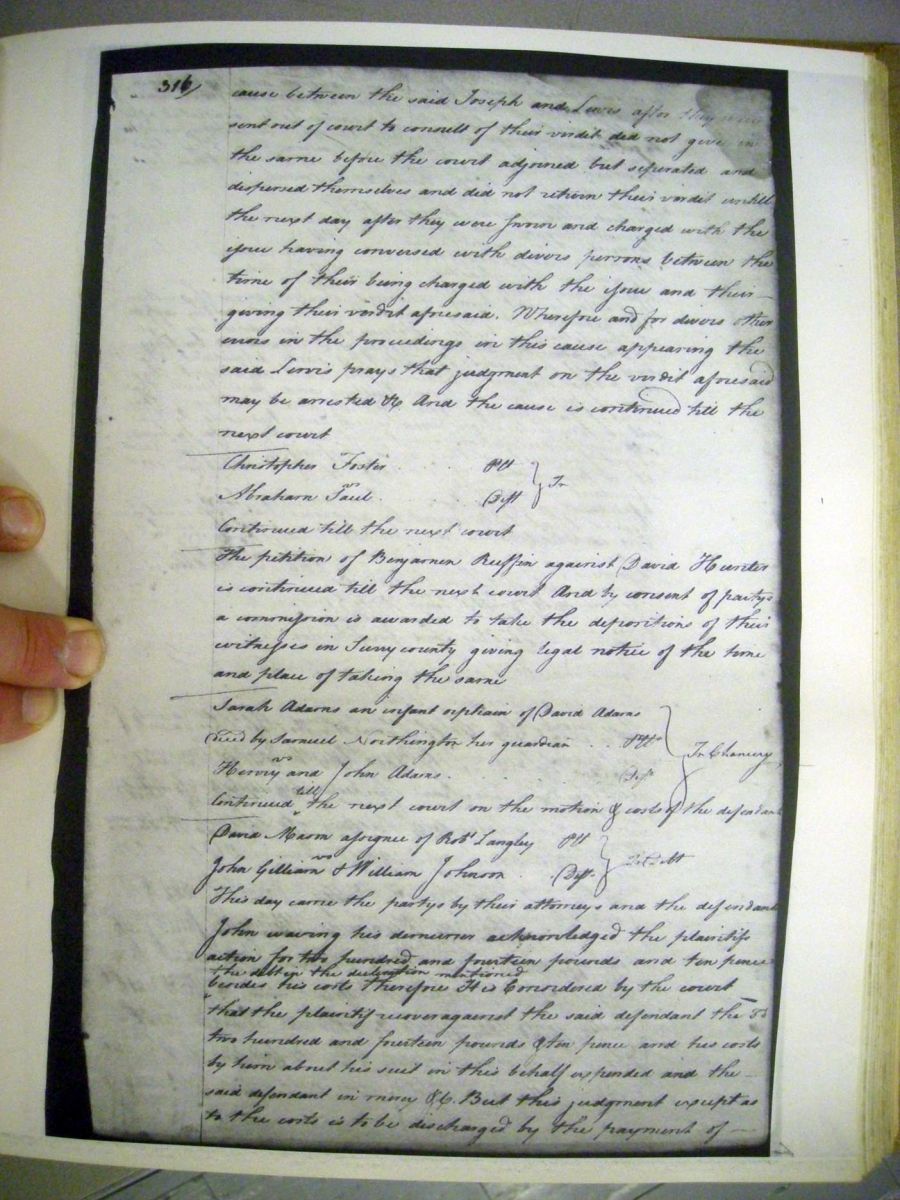 316/
cause between the said Joseph and Lewis after they were
sent out of court to consult of their virdit did not give in
the same before the court adjorned but seperated and
dispersed themselves and did not return their virdit untill
the next day after they were sworn and charged with the
issue having conversed with divers persons between the
time of their being charged with the issue and their
giving their virdit aforesaid. Wherefore and for divers other
errors in the proceedings in this cause appearing the
said Lewis prays that judgment on the virdit aforesaid
may be arrested &c And the cause is continued till the
next court
Christopher Foster Plt
vs In
Abraham Paul Deft
Continued till the next court
The petition of Benjamen Ruffin against David Hunter
is continued till the next court And by consent of partys
a commission is awarded to take the depositions of their
witnesses in Surry county giving legal notice of the time
and place of taking the same
Sarah Adams an infant orphain of David Adams
decd by Samuel Northington her guardian Plts
vs In Chancery
Hervy and John Adams Defts
Continued till the next court on the motion & costs of the defendant
David Mason assignee of Robt Langley Plt
vs In Debt
John Gilliam & William Johnson Defts
This day came the partys by their attorneys and the defendant
John waving his demurrer acknowledged the plaintifs
action for two hundred and fourteen pounds and ten pence
the debt in the declaration mentioned
besides his costs therefore It is Concidered by the court
that the plaintif recover against the said defendant the sd
two hundred and fourteen pounds & ten pence and his costs
by him about his suit in this behalf expended and the
said defendant in mercy &c. But this judgment except as
to the costs is to be discharged by the payment of